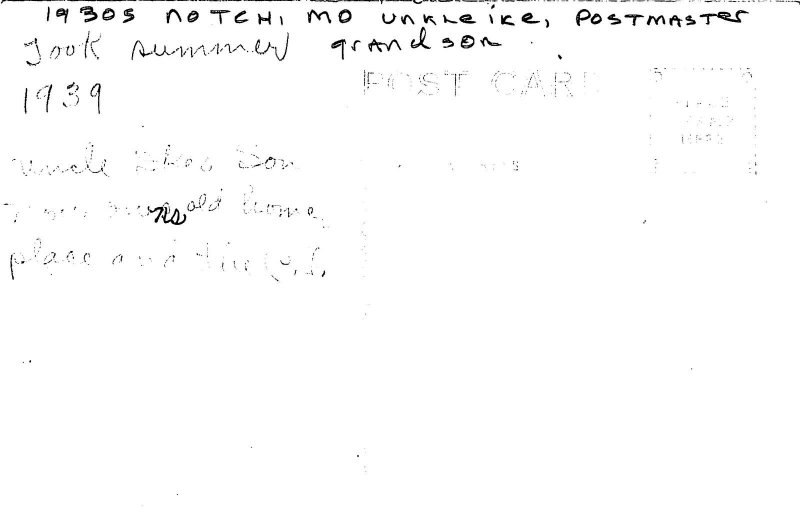 1930S NOTCH, MO UNKLE IKE, POSTMASTER
Took summer grandson
1939
POST CARD
uncle Ikes Son
now owns old home
place and the P.O.